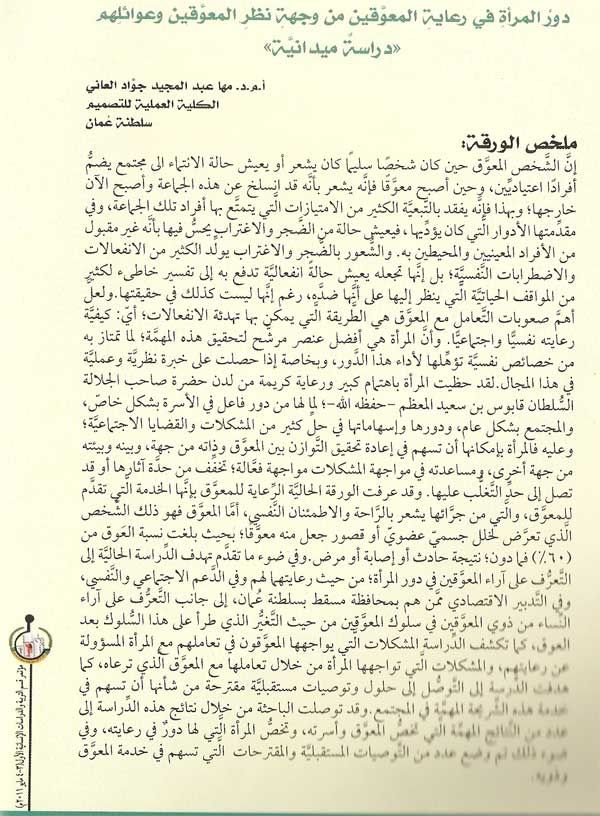 دورُ المرأةِ في رعايةِ المعوَّقين من وجهةِ نظرِ المعوَّقين وعوائلهم
«دراسةً ميدانيَّة»
أ.م.د. مها عبد المجيد جوَّاد العاني
الكلية العملية للتصميم
سلطنة عُمان
ملخص الورقة:
إنَّ الشَّخص المعوَّق حين كان شخصًا سليمًا كان يشعر أو يعيش حالة الانتماء الى مجتمع يضمُّ
أفرادًا اعتياديِّين، وحين أصبح معوَّقًا فإنَّه يشعر بأنَّه قد انسلخ عن هذه الجماعة وأصبح الآن
خارجها؛ وبهذا فإنَّه يفقد بالتَّبعيَّة الكثير من الامتيازات الَّتي يتمتَّع بها أفراد تلك الجماعة، وفي
مقدِّمتها الأدوار الَّتي كان يؤدِّيها، فيعيش حالة من الضَّجر والاغتراب يحسُّ فيها بأنَّه غير مقبول
من الأفراد المعينيين والمحيطين به. والشُّعور بالضَّجر والاغتراب يولِّد الكثير من الانفعالات
والاضطرابات النَّفسيَّة؛ بل إنَّها تجعله يعيش حالة انفعاليَّة تدفع به إلى تفسير خاطىء لكثيرٍ
من المواقف الحياتيَّة الَّتي ينظر إليها على أنَّها ضدَّه، رغم إنَّها ليست كذلك في حقيقتها.ولعل
أهمَّ صعوبات التَّعامل مع المعوَّق هي الطَّريقة الَّتي يمكن بها تهدئة الانفعالات؛ أيّ: كيفيَّة
رعايته نفسيًّا واجتماعيًّا. وأنَّ المرأة هي أفضل عنصر مرشَّح لتحقيق هذه المهمَّة؛ لما تمتاز به
من خصائص نفسيَّة تؤهِّلها لأداء هذا الدَّور، وبخاصة إذا حصلت على خبرة نظريَّة وعمليَّة
في هذا المجال.لقد حظيت المرأة باهتمام كبير ورعاية كريمة من لدن حضرة صاحب الجلالة
السُّلطان قابوس بن سعيد المعظم –حفظه الله–؛ لِما لها من دور فاعل في الأسرة بشكل خاصّ،
والمجتمع بشكل عام، ودورها وإسهاماتها في حلِّ كثير من المشكلات والقضايا الاجتماعيَّة؛
وعليه فالمرأة بإمكانها أن تسهم في إعادة تحقيق التَّوازن بين المعوَّق وذاته من جهة، وبينه وبيئته
من جهة أخرى، ومساعدته في مواجهة المشكلات مواجهة فعَّالة؛ تخفِّف من حدَّة آثارها أو قد
تصل إلى حدِّ التَّغلُّب عليها. وقد عرفت الورقة الحاليَّة الرِّعاية للمعوَّق بإنَّها الخدمة الَّتي تقدَّم
للمعوَّق، والَّتي من جرَّائها يشعر بالرَّاحة والاطمئنان النَّفسي، أمَّا المعوَّق فهو ذلك الشَّخص
الَّذي تعرَّض لخلل جسميّ عضويّ أو قصور جعل منه معوَّقًا؛ بحيث بلغت نسبة العَوق من
(٦٠٪) فما دون؛ نتيجة حادث أو إصابة أو مرض.وفي ضوء ما تقدَّم تهدف الدِّراسة الحاليَّة إلى
التَّعرُّف على آراء المعوَّقين في دور المرأة؛ من حيث رعايتهما لهم وفي الدَّعم الاجتماعي والنَّفسي،
وفي التَّدبير الاقتصادي ممَّن هم بمحافظة مسقط بسلطنة عُمان، إلى جانب التَّعرُّف على آراء
النِّساء من ذوي المعوَّقين في سلوك المعوَّقين من حيث التَّغيُّر الذي طرأ على هذا السُّلوك بعد
العوق، كما تكشف الدِّراسة المشكلات الَّتي يواجهها المعوَّقون في تعاملهم مع المرأة المسؤولة
عن رعايتهم، والمشكلات الَّتي تواجهها المرأة من خلال تعاملها مع المعوَّق الذي ترعاه، كما
هدفت الدِّرسة إلى التَّوصُّل إلى حلول وتوصيات مستقبليَّة مقترحة من شأنها أن تسهم في
خدمة هذه الشَّريحة المهمَّة في المجتمع.وقد توصلت الباحثة من خلال نتائج هذه الدِّراسة إلى
عدد من النَّتائج المهمَّة الَّتي تخصُّ المعوَّق وأسرته، وتخصُّ المرأة الَّتي لها دورٌ في رعايته، وفي
ضوء ذلك تم وضع عدد من التَّوصيات المستقبليَّة والمقترحات الَّتي تسهم في خدمة المعوَّق
وذويه.